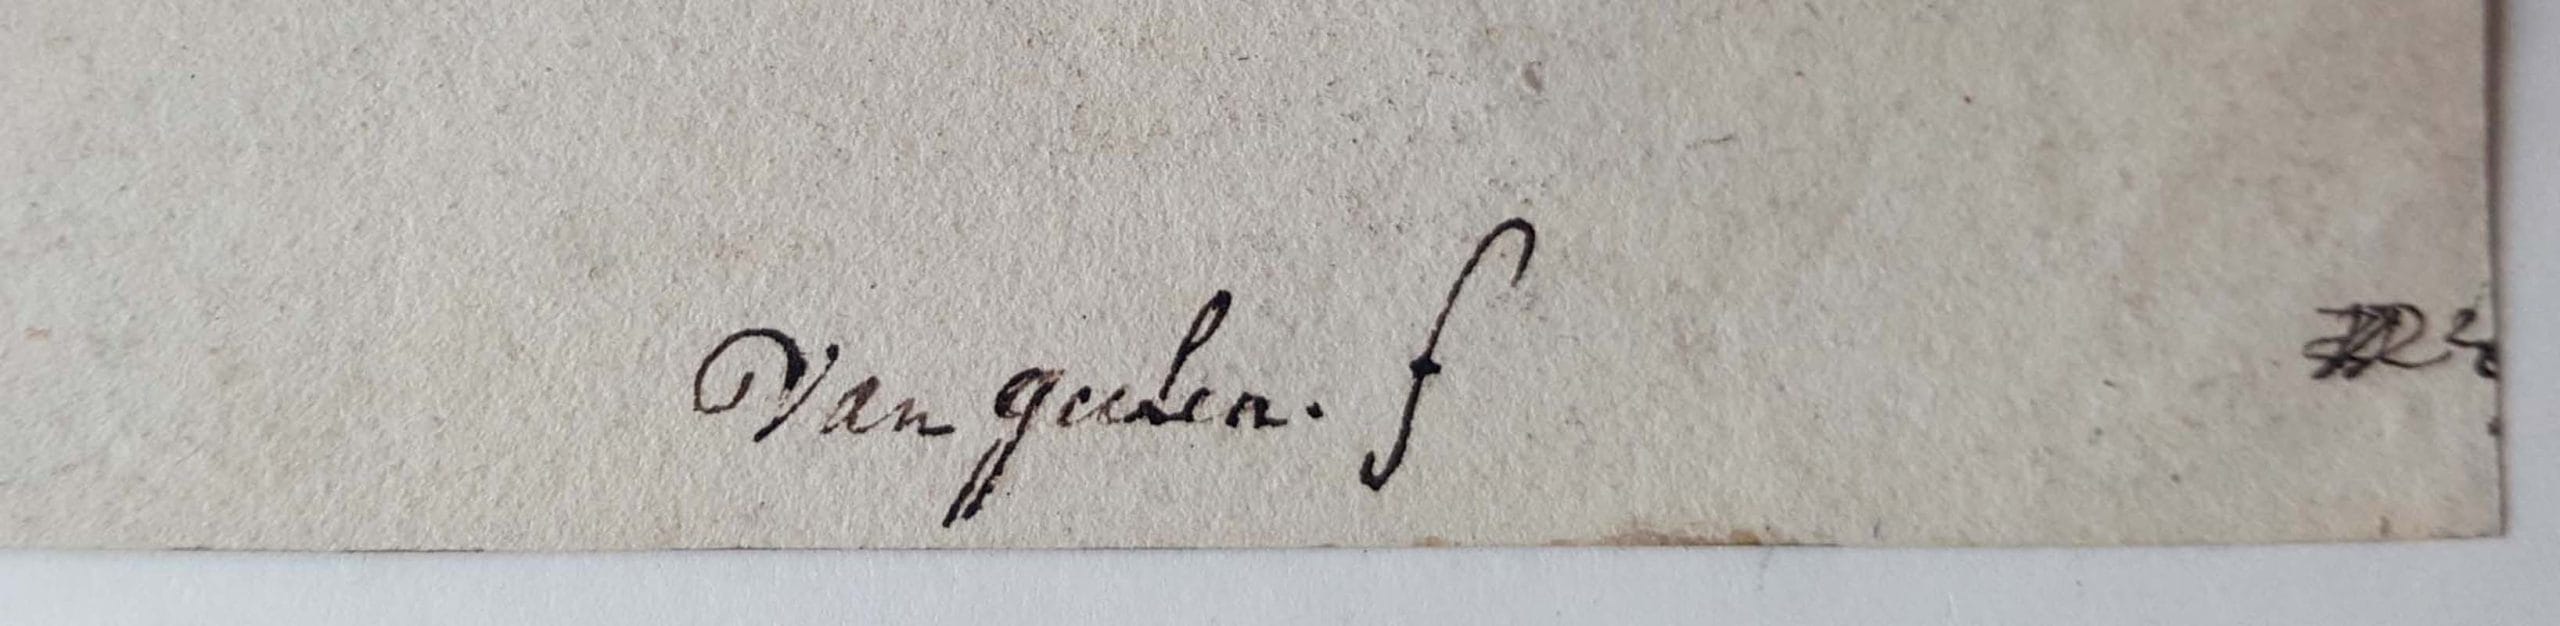 Van geelen. f